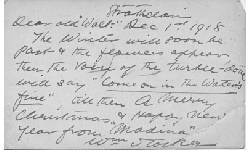 Strathcarin
Dear old "Walt" Dec 1st 1918
The Winter will soon be
Past & the flowers appear
then the Voice of the turtle-dove
will say "Come on in the Water's
fine", till then A Merry
Christmas & Happy New
Year from "Madina"
Wm Stocker